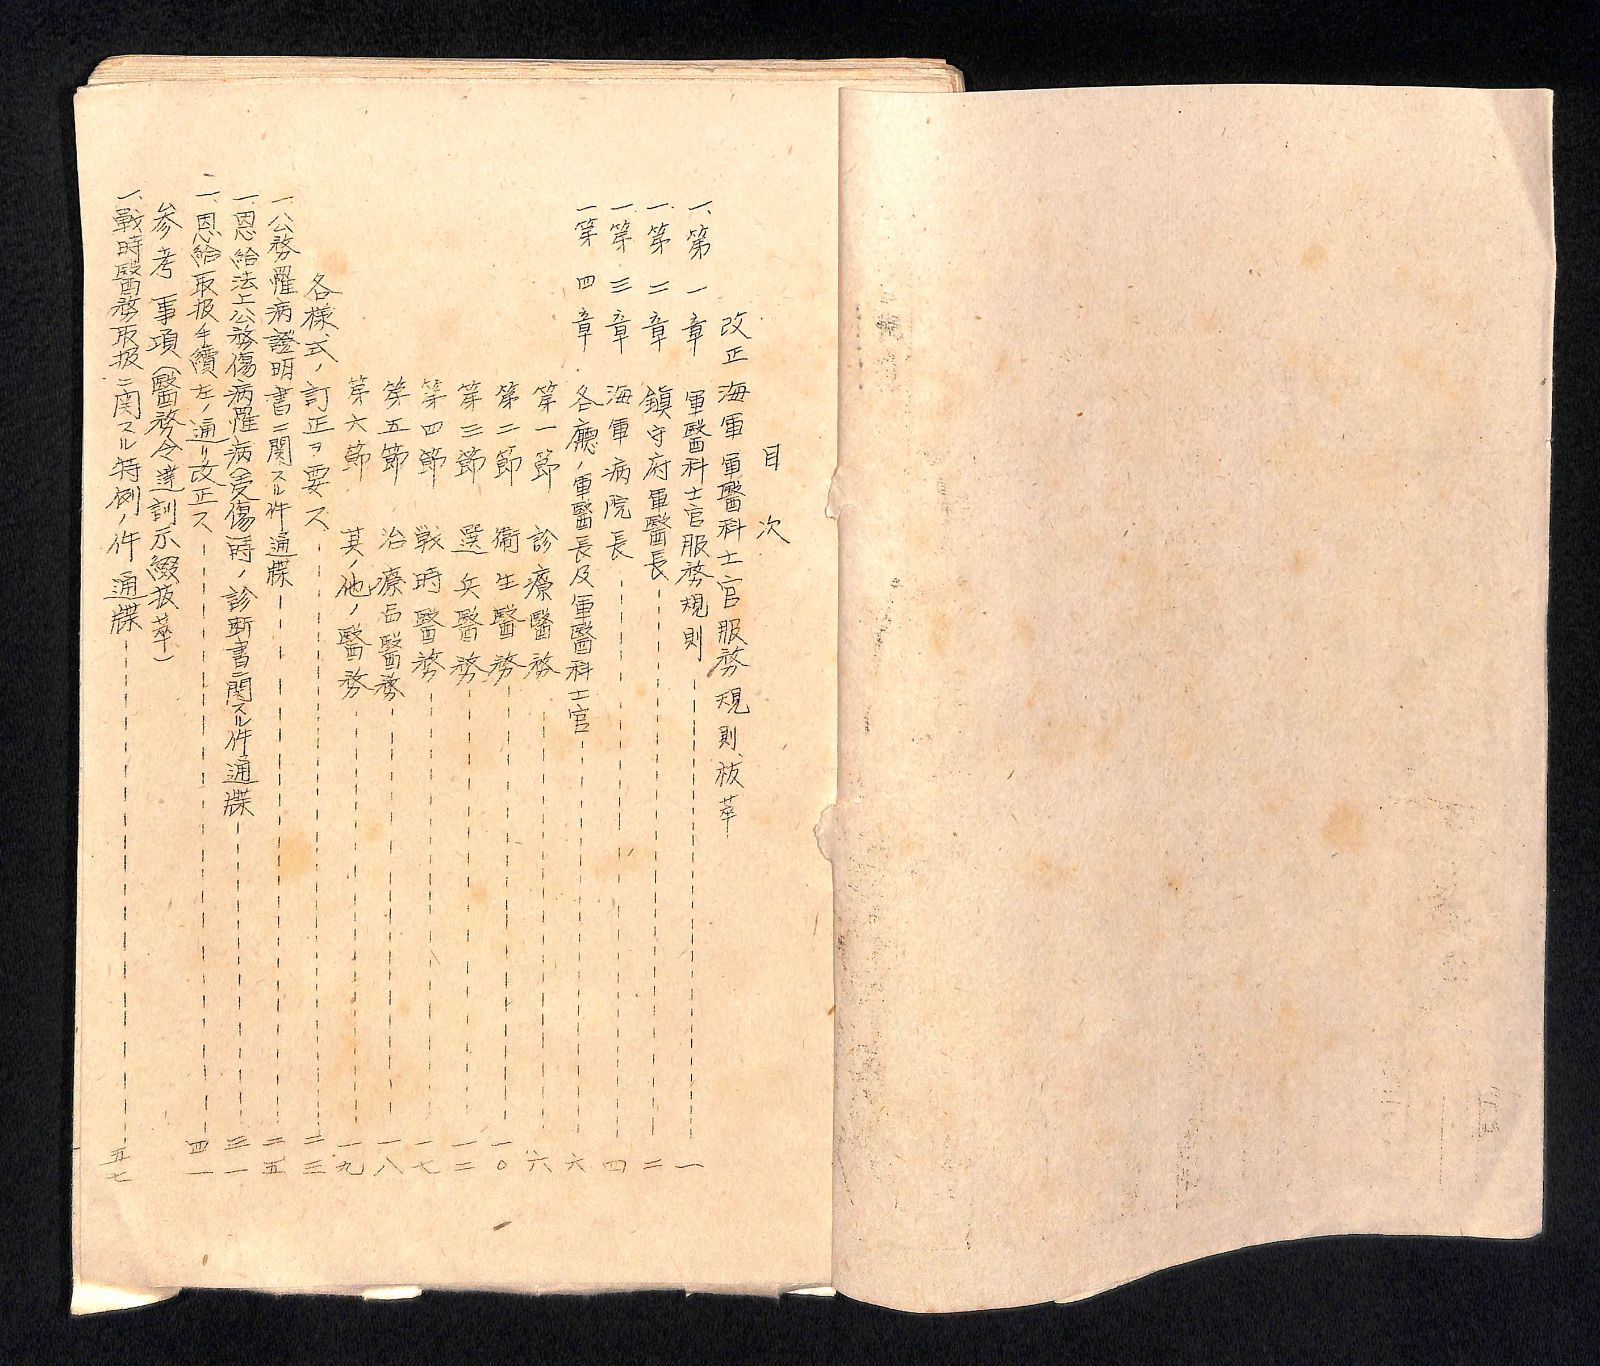 目次
改正海軍軍醫科士官服務規則、抜萃
一、第一章 軍醫科士官服務規則 一
一、第二章 鎮守府軍醫長 二
一、第三章 海軍病院長 四
一、第四章 各廳ノ軍醫長及軍醫科士官 六
第一節 診療醫務 六
第二節 衞生醫務 一〇
第三節 選兵醫務 一二
第四節 戦時醫務 一七
第五節 治療品醫務 一八
第六節 其ノ他ノ醫務 一九
各様式ノ訂正ヲ要ス 二三
一、公務罹病證明書ニ関スル件通牒 二五
一、恩給法上公務傷病罹病(受傷)時ノ診断書ニ関スル件通牒 三一
二、恩給取扱手續左ノ通リ改正ス 四一
参考事項(醫務令達訓示綴抜萃)
一、戰時醫務取扱ニ関スル特例ノ件通牒 五七